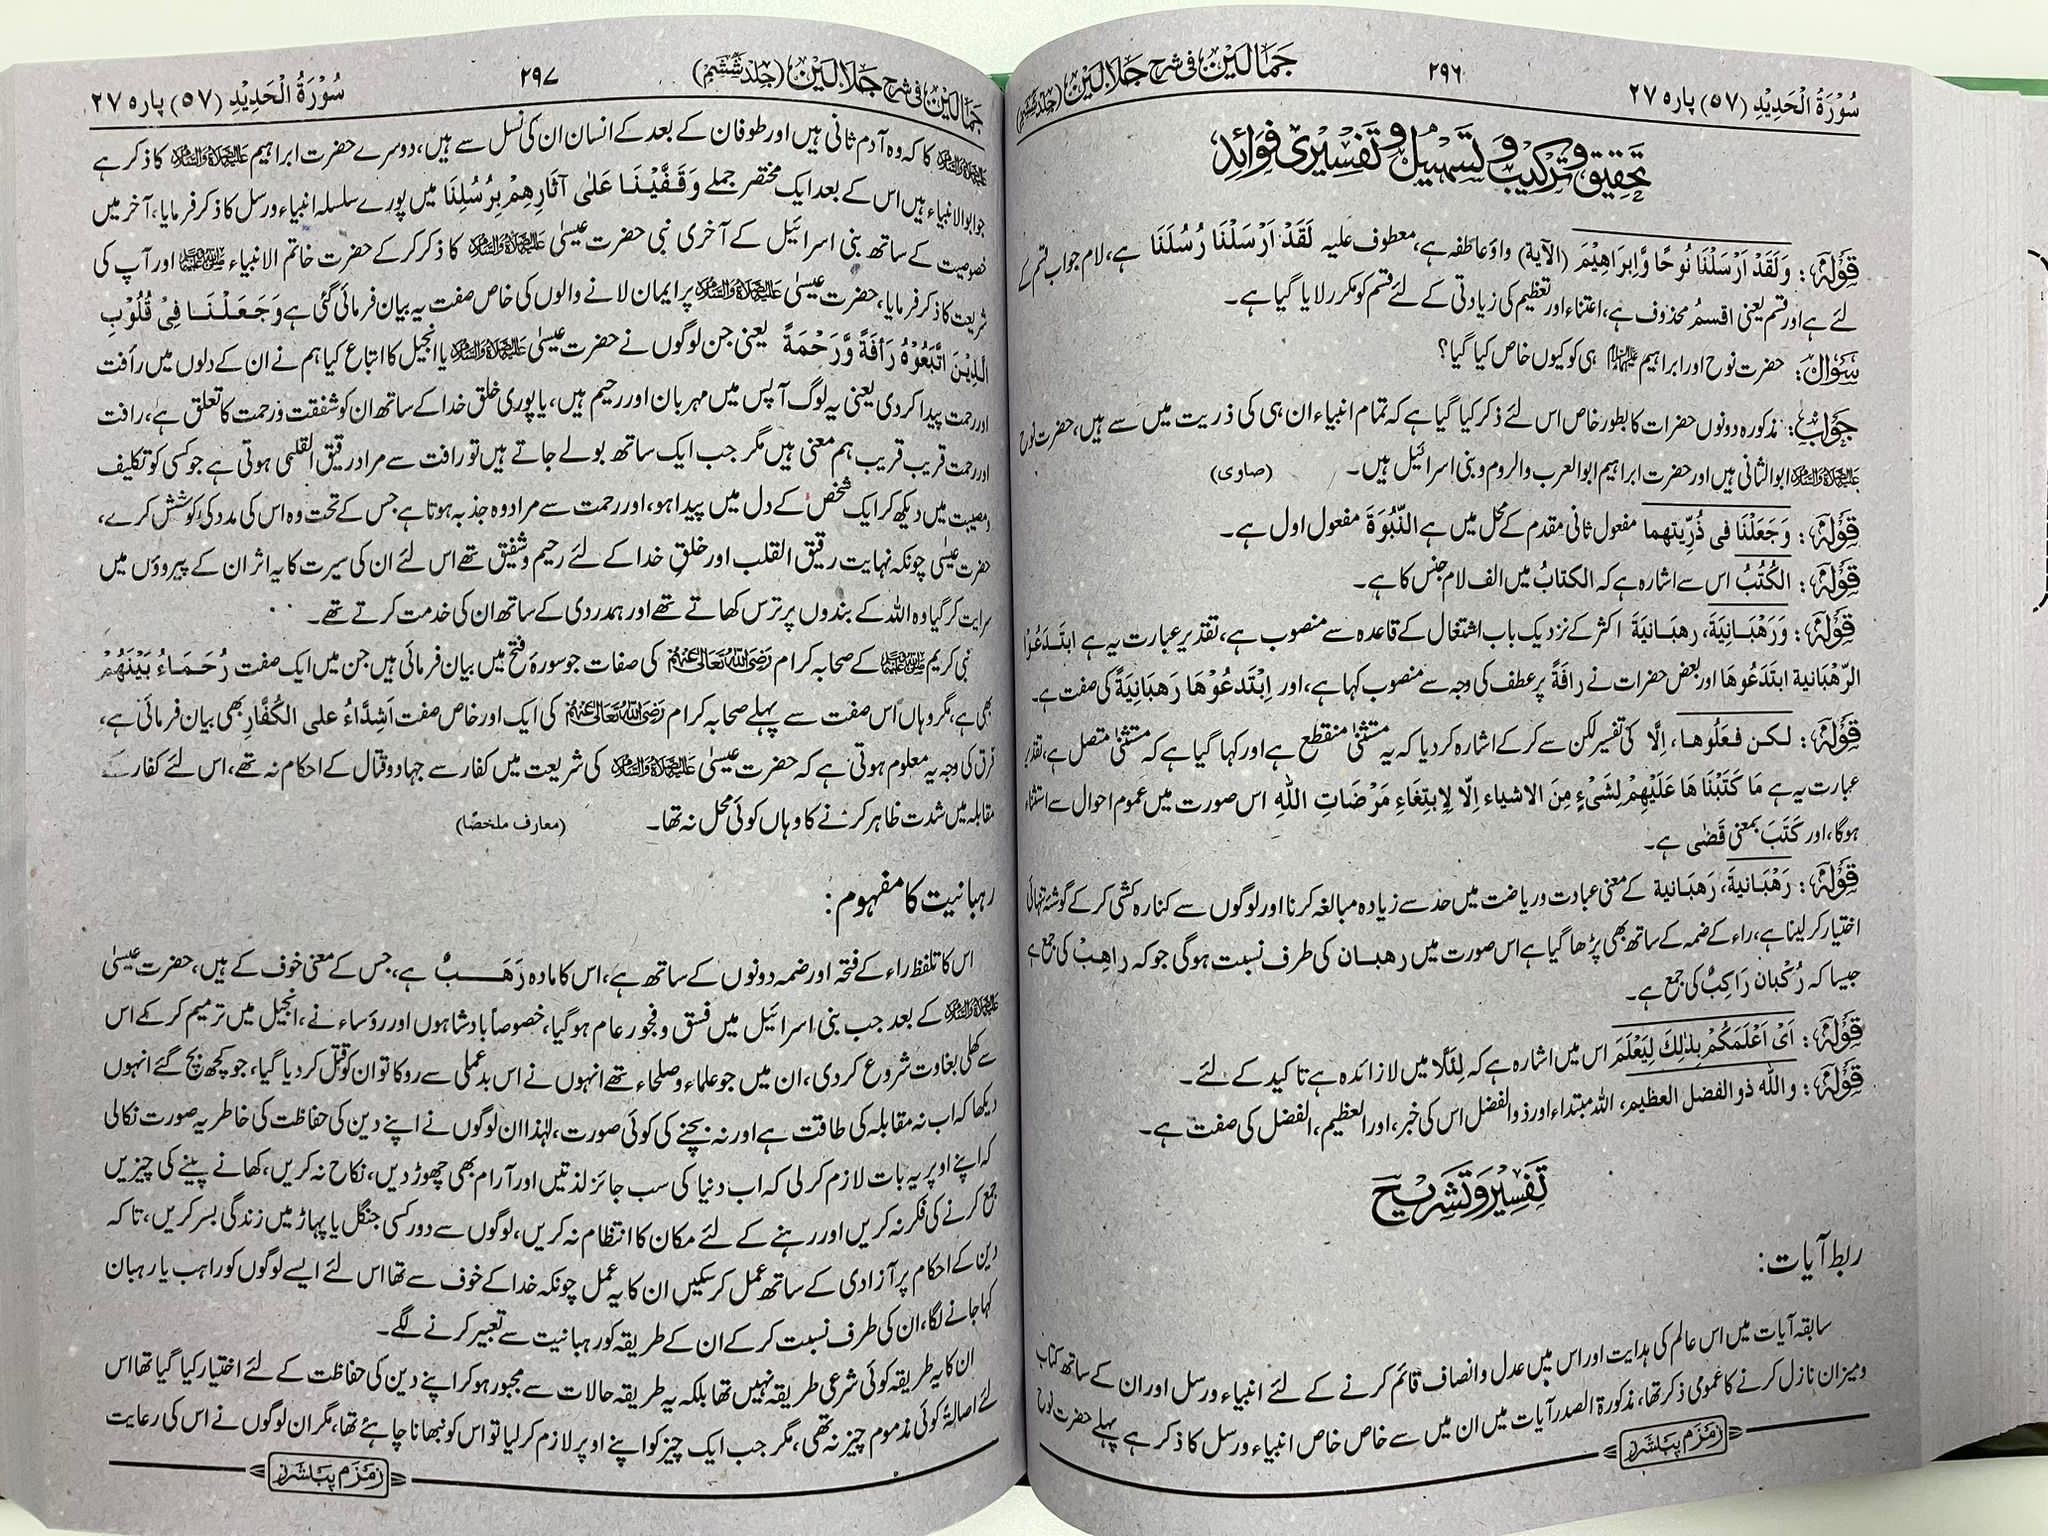 سُوْرَةُ الْحَدِيْدِ (٥٧) پاره ٢٧
٢٩٦
جَمَالَیْن فی شرح جَلَالَیْن (جلد ششم)
تحقیق و ترکیب و تسہیل و تفسیری فوائد
قولہ: وَلَقَدْ اَرْسَلْنَا نُوحًا وَّاِبرَاهِيْمَ (الآية) واؤ عاطفہ ہے، معطوف علیہ لَقَدْ اَرْسَلْنَا رُسُلَنَا ہے، لام جواب قسم کے
لئے ہے اور قسم یعنی اقسمُ محذوف ہے، اعتناء اور تعظیم کی زیادتی کے لئے قسم کو مکرر لایا گیا ہے۔
سوال: حضرت نوح اور ابراہیم علیہما السلام ہی کو کیوں خاص کیا گیا؟
جواب: مذکورہ دونوں حضرات کا بطور خاص اس لئے ذکر کیا گیا ہے کہ تمام انبیاء ان ہی کی ذریت میں سے ہیں، حضرت نوح
علیہ الصلاۃ والسلام ابو الثانی ہیں اور حضرت ابراہیم ابو العرب والروم و بنی اسرائیل ہیں۔ (صاوی)
قولہ: وَجَعَلْنَا فی ذُرِّيتهما مفعول ثانی مقدم کے محل میں ہے النُّبُوَةَ مفعول اول ہے۔
قولہ: الكُتُبُ اس سے اشارہ ہے کہ الکتابُ میں الف لام جنس کا ہے۔
قولہ: وَرَهْبَـانِيَّةَ، رهبَـانيةَ اکثر کے نزدیک باب اشتغال کے قاعدہ سے منصوب ہے، تقدیر عبارت یہ ہے ابتَدعُوا
الرّهْبَانية ابتَدَعُوها اور بعض حضرات نے رافةً پر عطف کی وجہ سے منصوب کہا ہے، اور اِبْتَدعُوْهَا رَهبَانِيَةً کی صفت ہے۔
قولہ: لـكـن فـعَلُوهـا، اِلَّا کی تفسیر لکن سے کر کے اشارہ کر دیا کہ یہ مستثنیٰ منقطع ہے اور کہا گیا ہے کہ مستثنیٰ متصل ہے، تقدیر
عبارت یہ ہے مَا كَتَبْنَا هَا عَلَيْهِمْ لِشَیْءٍ مِنَ الاشياء اِلّا لِابتِغَاءِ مَرْضَاتِ اللهِ اس صورت میں عموم احوال سے استثناء
ہوگا، اور كَتَبَ بمعنی قَضٰی ہے۔
قولہ: رَهْبَـانيةَ، رَهبَانية کے معنی عبادت و ریاضت میں حد سے زیادہ مبالغہ کرنا اور لوگوں سے کنارہ کشی کر کے گوشۂ تنہائی
اختیار کر لینا ہے، راء کے ضمہ کے ساتھ بھی پڑھا گیا ہے اس صورت میں رهبـان کی طرف نسبت ہوگی جو کہ راهِبْ کی جمع ہے
جیسا کہ رُكْبان رَاكِبٌ کی جمع ہے۔
قولہ: اَیْ اَعْلَمَكُمْ بِذٰلِكَ لِيَعْلَمَ اس میں اشارہ ہے کہ لِئَلّا میں لا زائدہ ہے تاکید کے لئے۔
قولہ: واللّٰه ذو الفضل العظيم، اللہ مبتداء اور ذو الفضل اس کی خبر، اور العظیم، الفضل کی صفت ہے۔
تفسیر و تشریح
ربط آیات:
سابقہ آیات میں اس عالم کی ہدایت اور اس میں عدل و انصاف قائم کرنے کے لئے انبیاء و رسل اور ان کے ساتھ کتاب
و میزان نازل کرنے کا عمومی ذکر تھا، مذکورۃ الصدر آیات میں ان میں سے خاص خاص انبیاء و رسل کا ذکر ہے پہلے حضرت نوح
زمزم پبلشرز
جمالَیْن فی شرح جَلَالَیْن (جلد ششم)
٢٩٧
سُوْرَةُ الْحَدِيْدِ (٥٧) پاره ٢٧
علیہ الصلاۃ والسلام کا کہ وہ آدم ثانی ہیں اور طوفان کے بعد کے انسان ان کی نسل سے ہیں، دوسرے حضرت ابراہیم علیہ الصلاۃ والسلام کا ذکر ہے
جو ابو الانبیاء ہیں اس کے بعد ایک مختصر جملے وَقَـفَّيْـنَـا عَلٰى آثارِهِمْ بِرُسُلِنَا میں پورے سلسلہ انبیاء و رسل کا ذکر فرمایا، آخر میں
خصوصیت کے ساتھ بنی اسرائیل کے آخری نبی حضرت عیسیٰ علیہ الصلاۃ والسلام کا ذکر کر کے حضرت خاتم الانبیاء ﷺ اور آپ کی
شریعت کا ذکر فرمایا، حضرت عیسیٰ علیہ الصلاۃ والسلام پر ایمان لانے والوں کی خاص صفت یہ بیان فرمائی گئی ہے وَجَـعَـلْـنَـا فِیْ قُلُوْبِ
الَّذِيْنَ اتَّبَعُوْهُ رَاْفَةً وَّرَحْمَةً یعنی جن لوگوں نے حضرت عیسیٰ علیہ الصلاۃ والسلام یا انجیل کا اتباع کیا ہم نے ان کے دلوں میں رأفت
اور رحمت پیدا کر دی یعنی یہ لوگ آپس میں مہربان اور رحیم ہیں، یا پوری خلق خدا کے ساتھ ان کو شفقت و رحمت کا تعلق ہے، رافت
اور رحمت قریب قریب ہم معنی ہیں مگر جب ایک ساتھ بولے جاتے ہیں تو رافت سے مراد رقیق القلبی ہوتی ہے جو کسی کو تکلیف
و مصیبت میں دیکھ کر ایک شخص کے دل میں پیدا ہو، اور رحمت سے مراد وہ جذبہ ہوتا ہے جس کے تحت وہ اس کی مدد کی کوشش کرے،
حضرت عیسیٰ چونکہ نہایت رقیق القلب اور خلقِ خدا کے لئے رحیم و شفیق تھے اس لئے ان کی سیرت کا یہ اثر ان کے پیروؤں میں
سرایت کر گیا وہ اللہ کے بندوں پر ترس کھاتے تھے اور ہمدردی کے ساتھ ان کی خدمت کرتے تھے۔
نبی کریم ﷺ کے صحابہ کرام رضی اللہ تعالی عنہم کی صفات جو سورۂ فتح میں بیان فرمائی ہیں جن میں ایک صفت رُحَمَـاءُ بَيْنَهُمْ
بھی ہے، مگر وہاں اس صفت سے پہلے صحابہ کرام رضی اللہ تعالی عنہم کی ایک اور خاص صفت اَشِدَّاءُ علی الكُفَّارِ بھی بیان فرمائی ہے،
فرق کی وجہ یہ معلوم ہوتی ہے کہ حضرت عیسیٰ علیہ الصلاۃ والسلام کی شریعت میں کفار سے جہاد و قتال کے احکام نہ تھے، اس لئے کفار کے
مقابلہ میں شدت ظاہر کرنے کا وہاں کوئی محل نہ تھا۔ (معارف ملخصًا)
رہبانیت کا مفہوم:
اس کا تلفظ راء کے فتحہ اور ضمہ دونوں کے ساتھ ہے، اس کا مادہ رَهَـــبٌ ہے، جس کے معنی خوف کے ہیں، حضرت عیسیٰ
علیہ الصلاۃ والسلام کے بعد جب بنی اسرائیل میں فسق و فجور عام ہو گیا، خصوصاً بادشاہوں اور رؤساء نے، انجیل میں ترمیم کر کے اس
سے کھلی بغاوت شروع کر دی، ان میں جو علماء و صلحاء تھے انہوں نے اس بدعملی سے روکا تو ان کو قتل کر دیا گیا، جو کچھ بچ گئے انہوں
دیکھا کہ اب نہ مقابلہ کی طاقت ہے اور نہ بچنے کی کوئی صورت، لہٰذا ان لوگوں نے اپنے دین کی حفاظت کی خاطر یہ صورت نکالی
کہ اپنے اوپر یہ بات لازم کر لی کہ اب دنیا کی سب جائز لذتیں اور آرام بھی چھوڑ دیں، نکاح نہ کریں، کھانے پینے کی چیزیں
جمع کرنے کی فکر نہ کریں اور رہنے کے لئے مکان کا انتظام نہ کریں، لوگوں سے دور کسی جنگل یا پہاڑ میں زندگی بسر کریں، تاکہ
دین کے احکام پر آزادی کے ساتھ عمل کر سکیں ان کا یہ عمل چونکہ خدا کے خوف سے تھا اس لئے ایسے لوگوں کو راہب یا رہبان
کہا جانے لگا، ان کی طرف نسبت کر کے ان کے طریقہ کو رہبانیت سے تعبیر کرنے لگے۔
ان کا یہ طریقہ کوئی شرعی طریقہ نہیں تھا بلکہ یہ طریقہ حالات سے مجبور ہو کر اپنے دین کی حفاظت کے لئے اختیار کیا گیا تھا اس
لئے اصالۃً کوئی مذموم چیز نہ تھی، مگر جب ایک چیز کو اپنے اوپر لازم کر لیا تو اس کو نبھانا چاہئے تھا، مگر ان لوگوں نے اس کی رعایت
زمزم پبلشرز